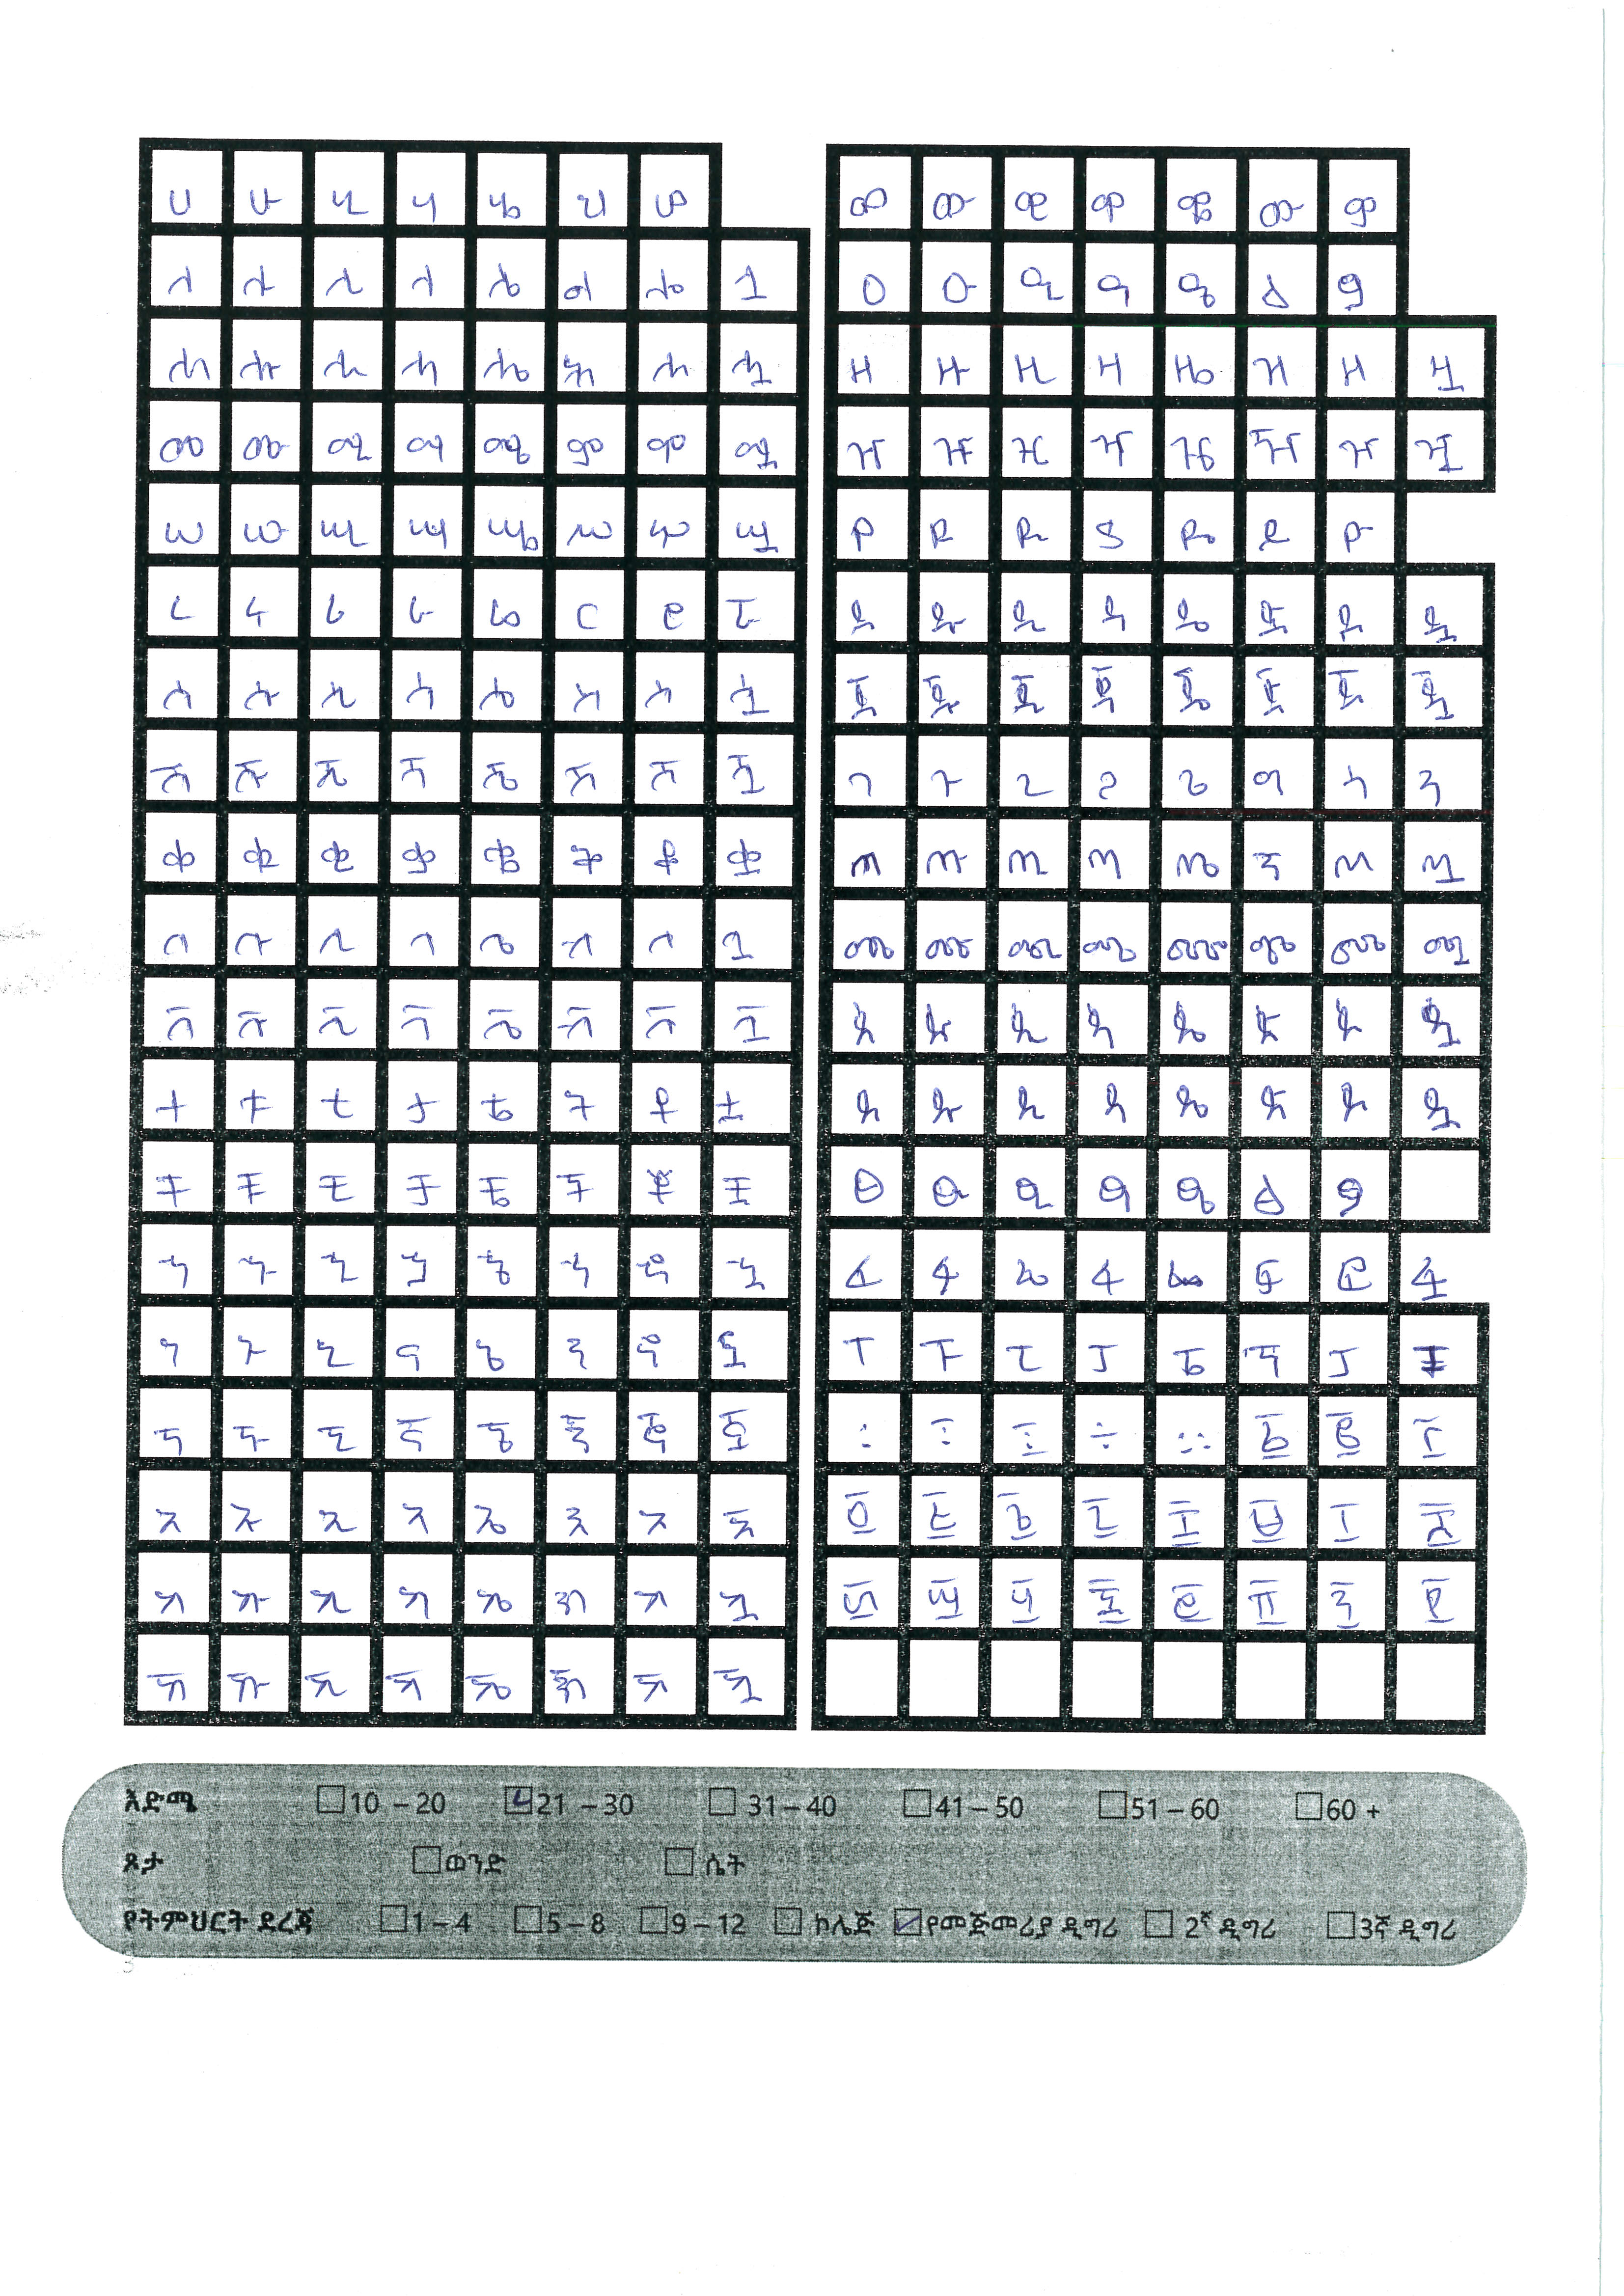 ሀ ሁ ሂ ሃ ሄ ህ ሆ
ለ ሉ ሊ ላ ሌ ል ሎ ሏ
ሐ ሑ ሒ ሓ ሔ ሕ ሖ ሗ
መ ሙ ሚ ማ ሜ ም ሞ ሟ
ሠ ሡ ሢ ሣ ሤ ሥ ሦ ሧ
ረ ሩ ሪ ራ ሬ ር ሮ ሯ
ሰ ሱ ሲ ሳ ሴ ስ ሶ ሷ
ሸ ሹ ሺ ሻ ሼ ሽ ሾ ሿ
ቀ ቁ ቂ ቃ ቄ ቅ ቆ ቋ
በ ቡ ቢ ባ ቤ ብ ቦ ቧ
ቨ ቩ ቪ ቫ ቬ ቭ ቮ ቯ
ተ ቱ ቲ ታ ቴ ት ቶ ቷ
ቸ ቹ ቺ ቻ ቼ ች ቾ ቿ
ኀ ኁ ኂ ኃ ኄ ኅ ኆ ኋ
ነ ኑ ኒ ና ኔ ን ኖ ኗ
ኘ ኙ ኚ ኛ ኜ ኝ ኞ ኟ
አ ኡ ኢ ኣ ኤ እ ኦ ኧ
ከ ኩ ኪ ካ ኬ ክ ኮ ኳ
ኸ ኹ ኺ ኻ ኼ ኽ ኾ ዃ
ወ ዉ ዊ ዋ ዌ ው ዎ
ዐ ዑ ዒ ዓ ዔ ዕ ዖ
ዘ ዙ ዚ ዛ ዜ ዝ ዞ ዟ
ዠ ዡ ዢ ዣ ዤ ዥ ዦ ዧ
የ ዩ ዪ ያ ዬ ይ ዮ
ደ ዱ ዲ ዳ ዴ ድ ዶ ዷ
ጀ ጁ ጂ ጃ ጄ ጅ ጆ ጇ
ገ ጉ ጊ ጋ ጌ ግ ጎ ጓ
ጠ ጡ ጢ ጣ ጤ ጥ ጦ ጧ
ጨ ጩ ጪ ጫ ጬ ጭ ጮ ጯ
ጰ ጱ ጲ ጳ ጴ ጵ ጶ ጷ
ጸ ጹ ጺ ጻ ጼ ጽ ጾ ጿ
ፀ ፁ ፂ ፃ ፄ ፅ ፆ
ፈ ፉ ፊ ፋ ፌ ፍ ፎ ፏ
ፐ ፑ ፒ ፓ ፔ ፕ ፖ ፗ
፡ ፣ ፤ ÷ ። ፩ ፪ ፫
፬ ፭ ፮ ፯ ፰ ፱ ፲ ፳
፴ ፵ ፶ ፷ ፸ ፹ ፺ ፻
እድሜ 10 – 20 21 – 30 31 – 40 41 – 50 51 – 60 60 +
ጾታ ወንድ ሴት
የትምህርት ደረጃ 1 – 4 5 – 8 9 – 12 ኮሌጅ የመጅመሪያ ዲግሪ 2ኛ ዲግሪ 3ኛ ዲግሪ